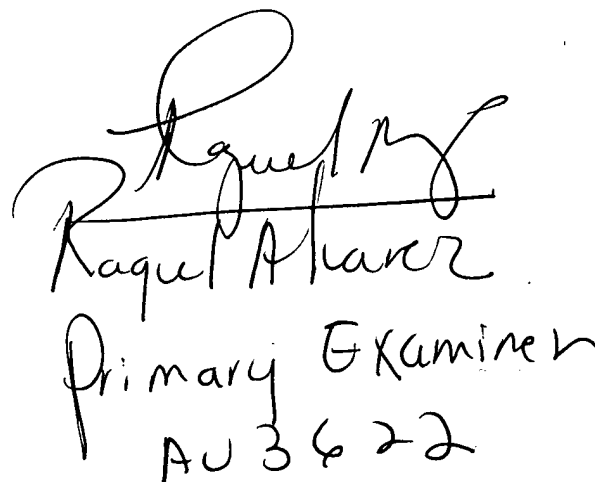 Raquel
Raquel Alvarez
Primary Examiner
AU 3622